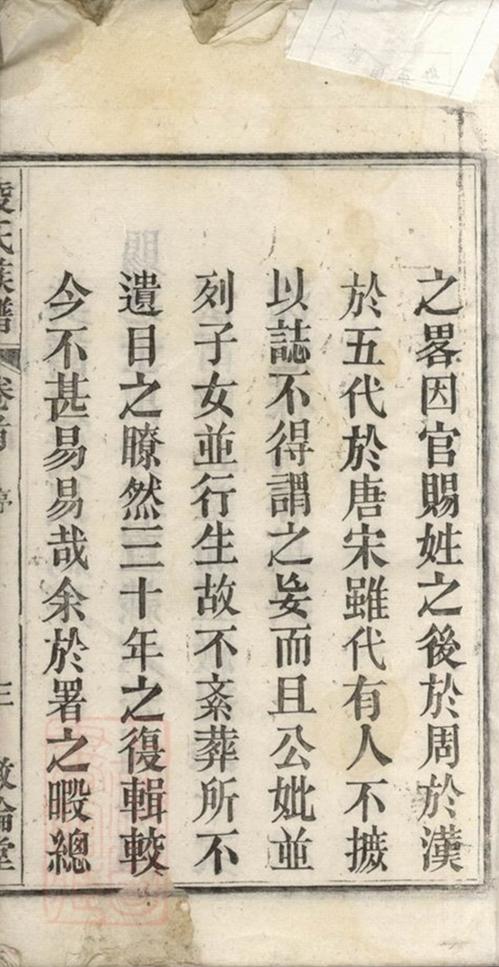 之畧因官賜姓之後於周於漢
於五代於唐宋雖代有人不摭
以誌不得謂之妄而且公妣並
列子女並行生故不紊葬所不
遺目之瞭然三十年之復輯較
今不甚易易哉余於署之暇總
氏族譜
卷首
序
三
敦倫堂